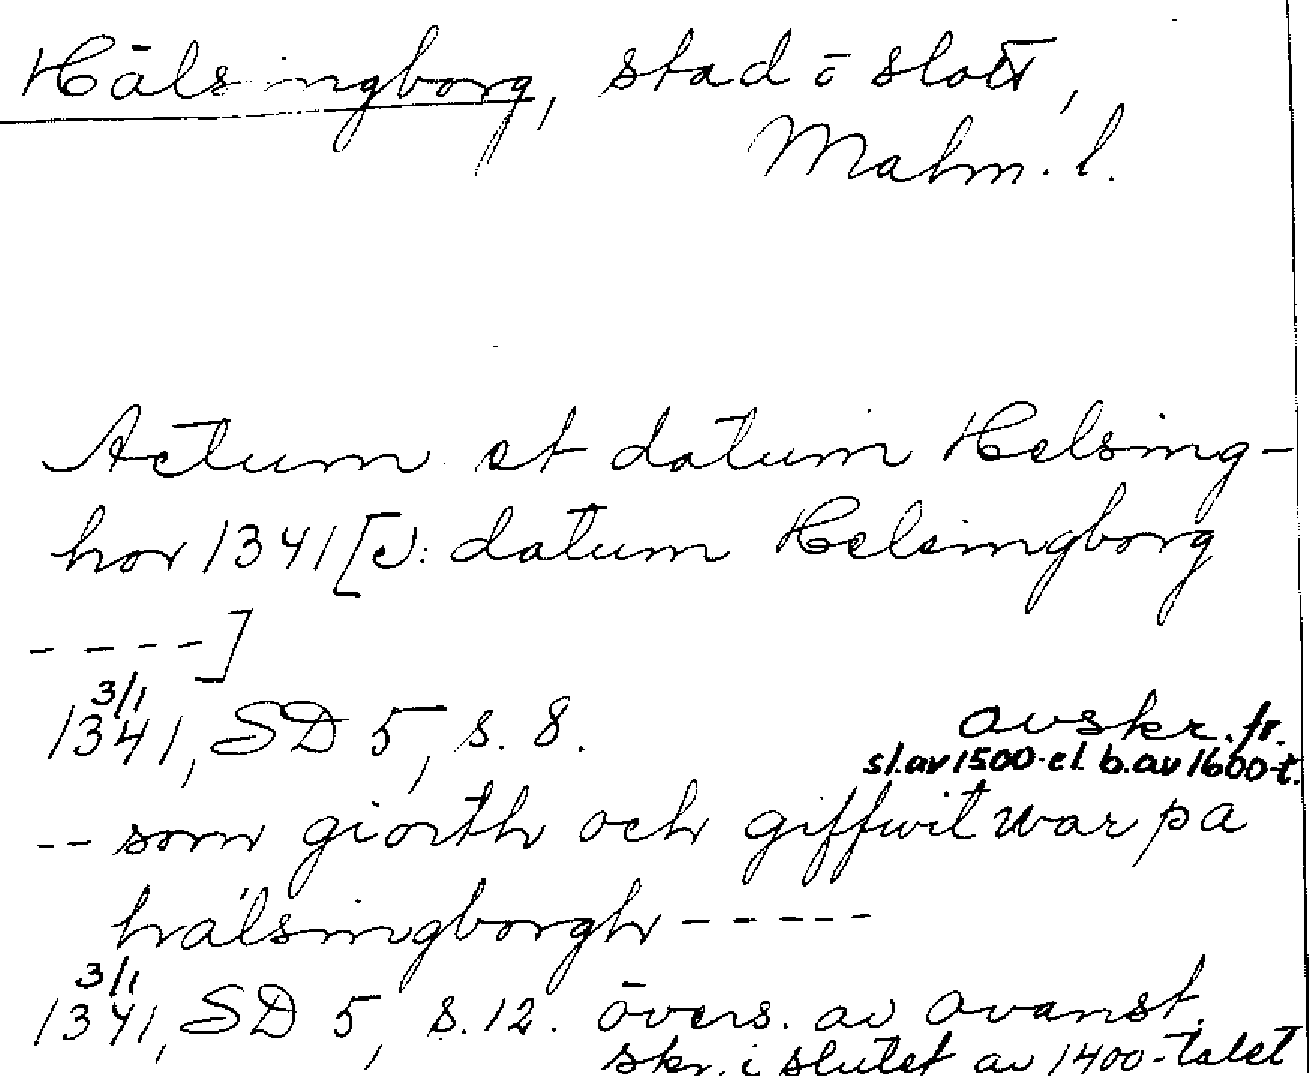 Hälsingborg, stad o slott,
Malm. l.
Actum et datum Helsing-
hor 1341 [ɔ: datum Helsingborg
- - - - ]
3/1
1341, SD 5, s. 8. avskr. fr.
sl. av 1500- el. b. av 1600-t.
-- som giorth och giffwit war pa
hälsingborgh - - - - -
3/1
1341, SD 5, s. 12. övers. av ovanst.
skr. i slutet av 1400-talet